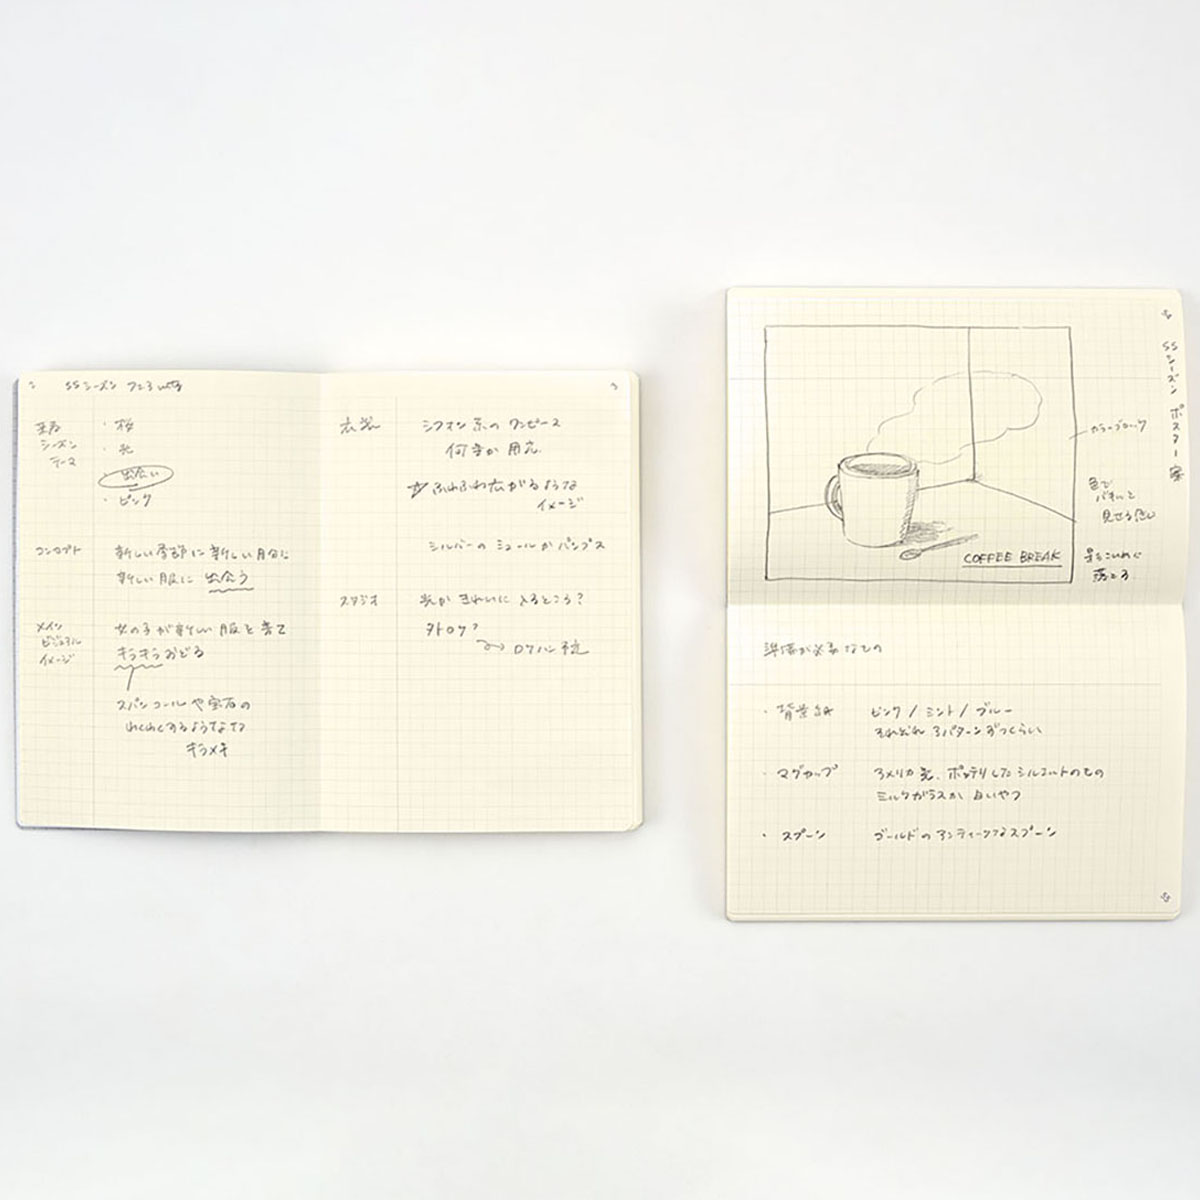 SSシーズン
シーズン
テーマ
・桜
・光
・出会い
・ピンク
コンセプト
新しい季節に新しい自分に
新しい服に 出会う
メイン
ビジュアル
イメージ
女の子が新しい服を着て
キラキラおどる
スパンコールや宝石の
わくわくするような
キラメキ
衣装
シフォン系のワンピース
何着か用意
☆ふわふわ広がるような
イメージ
シルバーのミュールかパンプス
スタジオ
光がきれいに入るところ?
外ロケ?
ロケハン
SSシーズン ポスター案
カラーブロック
色で
パキッと
見せる感じ
影もこいめに
落とす
COFFEE BREAK
準備が必要なもの
・背景紙
ピンク / ミント / ブルー
それぞれ3パターンずつくらい
・マグカップ
アメリカ製、ポッテリしたシルエットのもの
ミルクガラスか 白いやつ
・スプーン
ゴールドのアンティークなスプーン